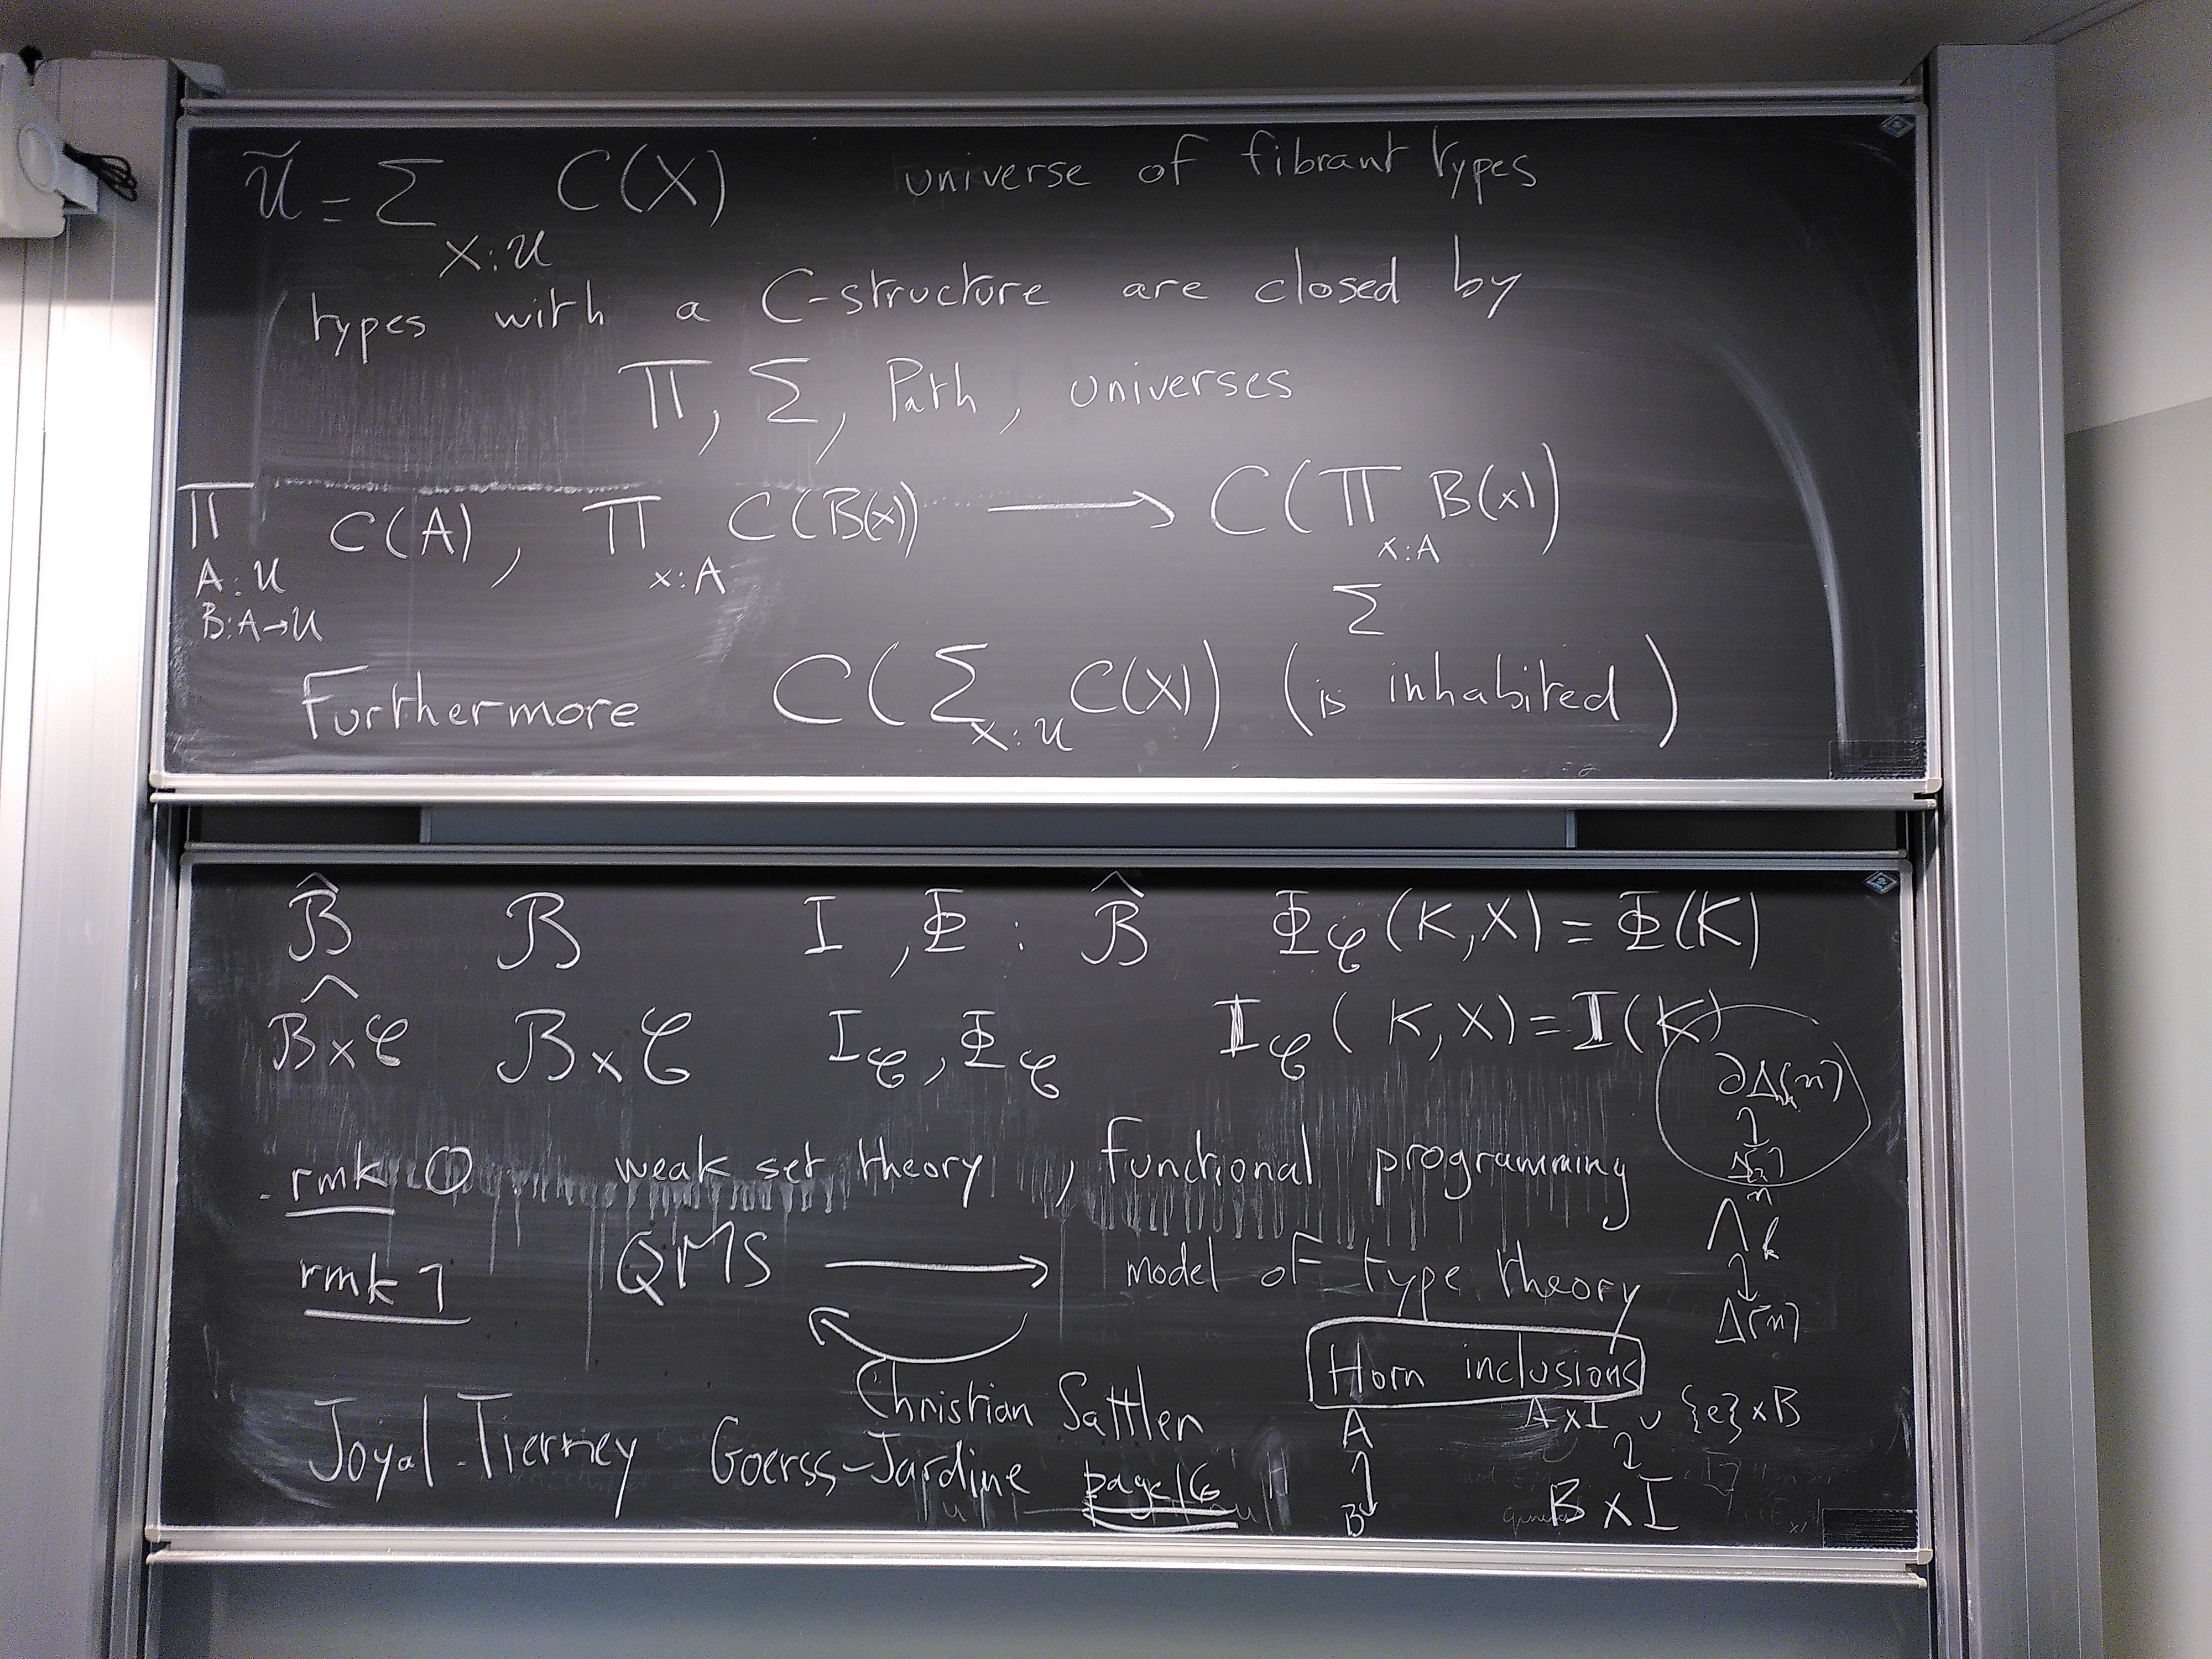 Ũ = Σ_{X:U} C(X) universe of fibrant types
types with a C-structure are closed by
Π, Σ, Path, universes
Π_{A:U B:A→U} C(A), Π_{x:A} C(B(x)) ⟶ C(Π_{x:A} B(x))
Σ
Furthermore C(Σ_{X:U} C(X)) (is inhabited)
B̂ B I, Φ : B̂ Φ_𝒞(K,X) = Φ(K)
\widehat{B×𝒞} B×𝒞 I_𝒞, Φ_𝒞 I_𝒞(K,X) = I(K)
∂Δ[n]
rmk 0 weak set theory, functional programming
Λ^n_k
↓
Δ[n]
rmk 1 QMS ⟶ model of type theory
Christian Sattler
Horn inclusions
A A×I ∪ {e}×B
↓ ↓
B B×I
Joyal-Tierney Goerss-Jardine page 16